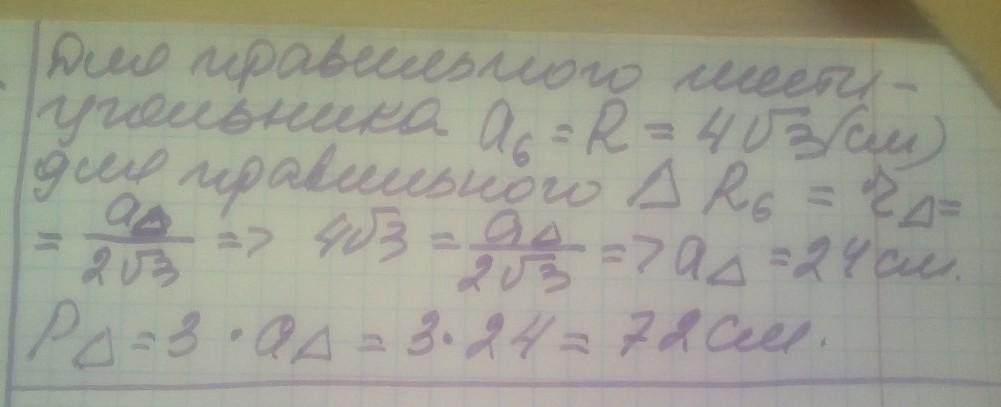 Для правильного шести-
угольника a₆ = R = 4√3 (см)
для правильного Δ R₆ = r_Δ =
= a_Δ/2√3 => 4√3 = a_Δ/2√3 => a_Δ = 24 см.
P_Δ = 3 · a_Δ = 3 · 24 = 72 см.